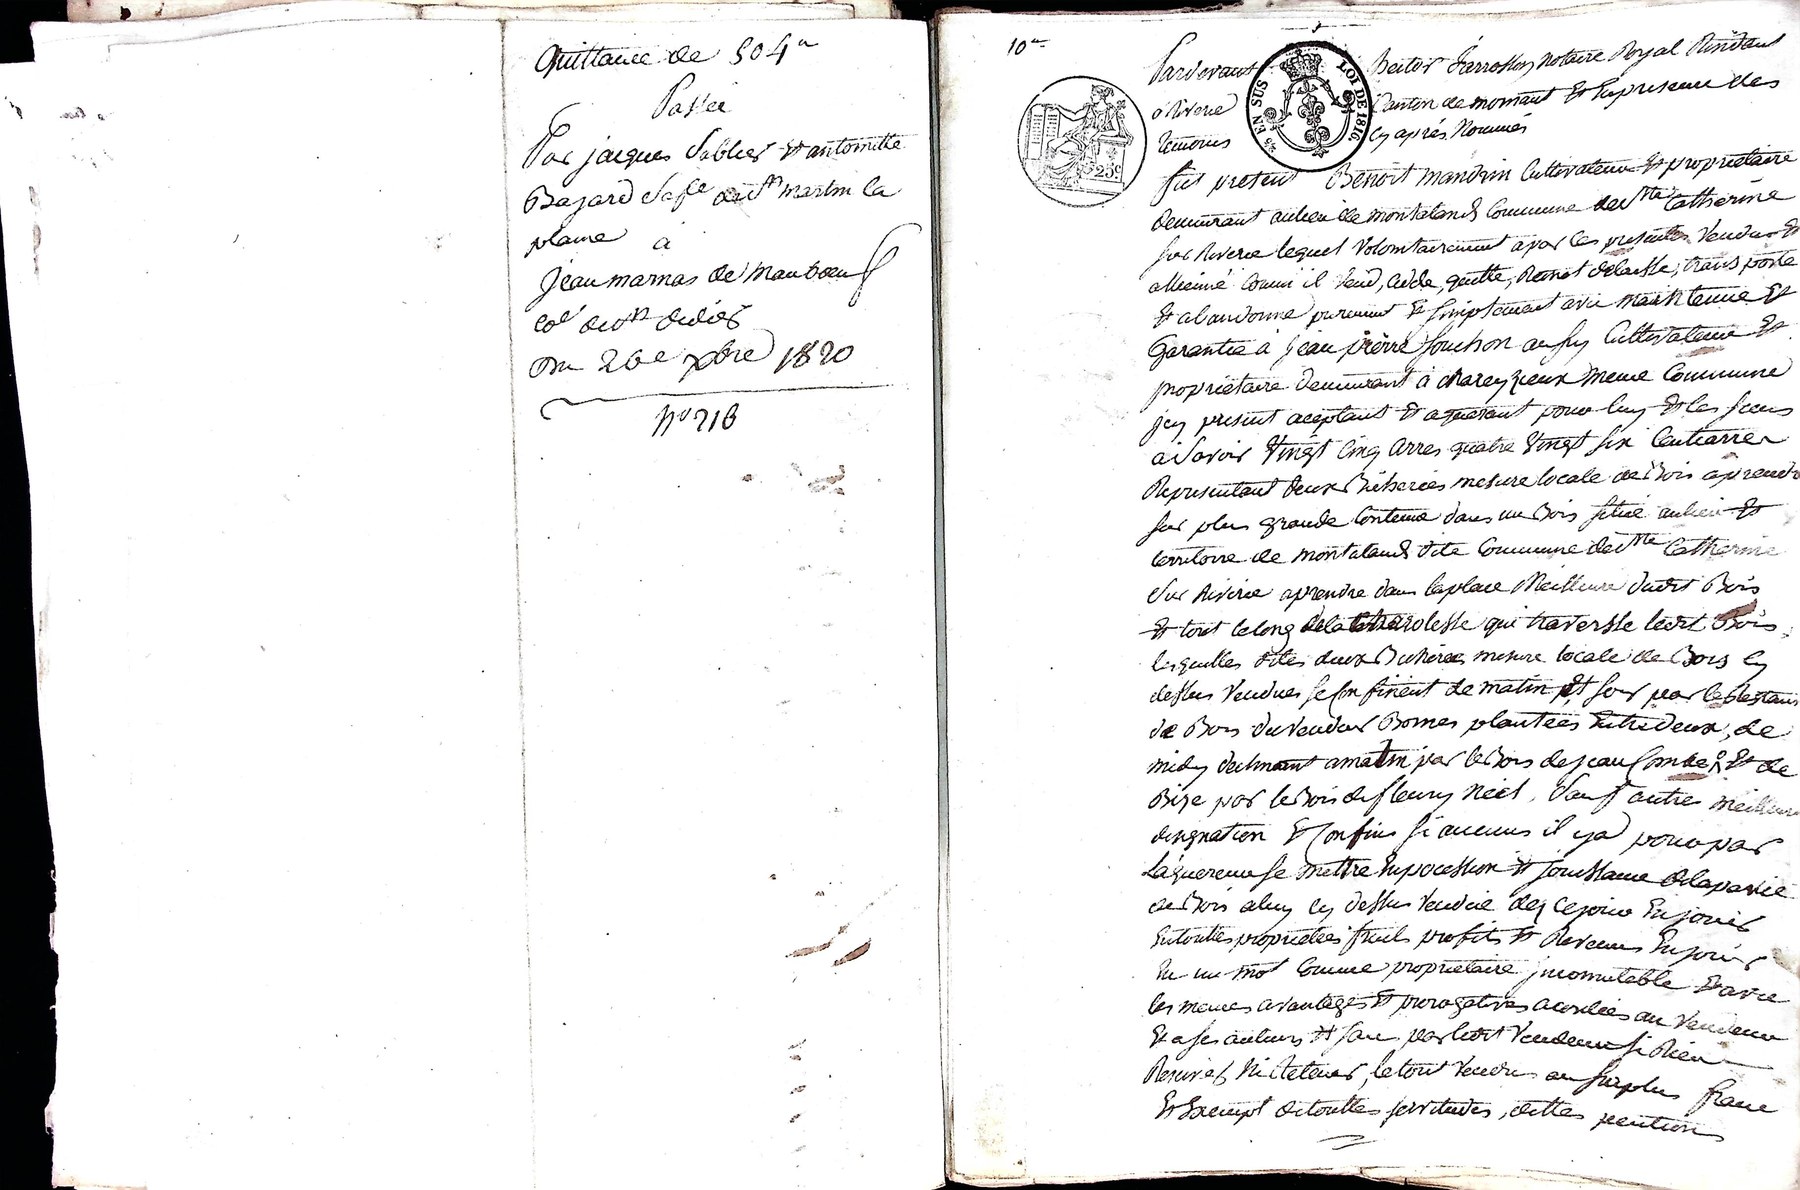 Quittance de 504 lt
Passée
Par jacques Sablier Et antoinette
Bajard Safe de St martin la
plaine à
jean marnas de mauboeuf
Coe de St didier
Du 26e xbre 1820
No 216
10 ...
Pardevant hector farrossy Notaire Royal Résidant
à Riverie Canton de mornant Et En présence des
témoins Cy après Nommés
EN SUS LOI DE 1816
25c
fut présent Benoît mandrin Cultivateur Et propriétaire
demeurant au lieu de montaland Commune de Ste Catherine
sur Riverie lequel Volontairement a par les présentes Vendu Et
alliéné Comm il Vend, Cède, quitte, Remet delaisse, transporte
Et abandonne purement Et simplement avec maintenue Et
Garantie à jean pierre fouchon aussy Cultivateur Et
propriétaire demeurant à chareyzieux meme Commune
jcy présent aceptant Et aquérant pour luy Et les siens
à Savoir Vingt Cinq Arres quatre Vingt six Centiarres
Représentant deux Bicherées mesure locale de Bois aprendre
sur plus grande Contenue dans un Bois situé au lieu Et
territoire de montaland dite Commune de Ste Catherine
Sur Riverie aprendre dans la place Meilleure dudit Bois
Et tout le long de la qui traversse ledit Bois,
lesquelles dites deux Bicherées mesure locale de Bois Cy
dessus Vendues se Confinent de matin Et soir par le Restant
de Bois du Vendeur Bornes plantées Entredeux, de
midy declinant a matin par le Bois de jean Combe Et de
Bize par le Bois de fleury Néel, Sauf autres meilleure
désignation Et Confins si aucuns il y a pour par
Laquéreur se mettre En pocession Et jouissance de la partie
de Bois a luy Cy dessus Vendue dez ce jour En jouir
En toutes propriétées fruits profits Et Revenus En jouir
En un mot Comme propriétaire jncomutable Et avec
les memes avantages Et prorogatives acordées au Vendeur
Et a ses auteurs Et sans par ledit Vendeur si Rien
Reserver Ni Retenir, le tout Vendu au surplus franc
Et Exempt de touttes servitudes, dettes pention